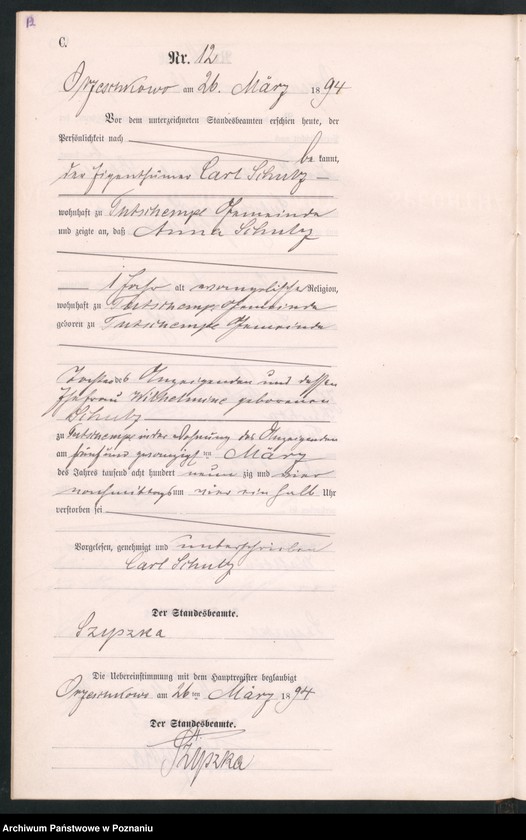 12
C.
Nr. 12
Orzeschkowo am 26. März 1894
Vor dem unterzeichneten Standesbeamten erschien heute, der
Persönlichkeit nach
be kannt,
der Eigenthümer Carl Schulz
wohnhaft zu Tutschempe Gemeinde
und zeigte an, daß Anna Schulz
1 Jahr alt evangelische Religion,
wohnhaft zu Tutschempe Gemeinde
geboren zu Tutschempe Gemeinde
Tochter des Anzeigenden und dessen
Ehefrau Wilhelmine geborenen
Schulz
zu Tutschempe in der Wohnung des Anzeigenden
am fünf und zwanzigsten März
des Jahres tausend acht hundert neun zig und vier
nachmittags um vier ein halb Uhr
verstorben sei
Vorgelesen, genehmigt und unterschrieben
Carl Schulz
Der Standesbeamte.
Szypzka
Die Uebereinstimmung mit dem Hauptregister beglaubigt
Orzeschkowo am 26ten März 1894
Der Standesbeamte.
Szypzka
Archiwum Państwowe w Poznaniu